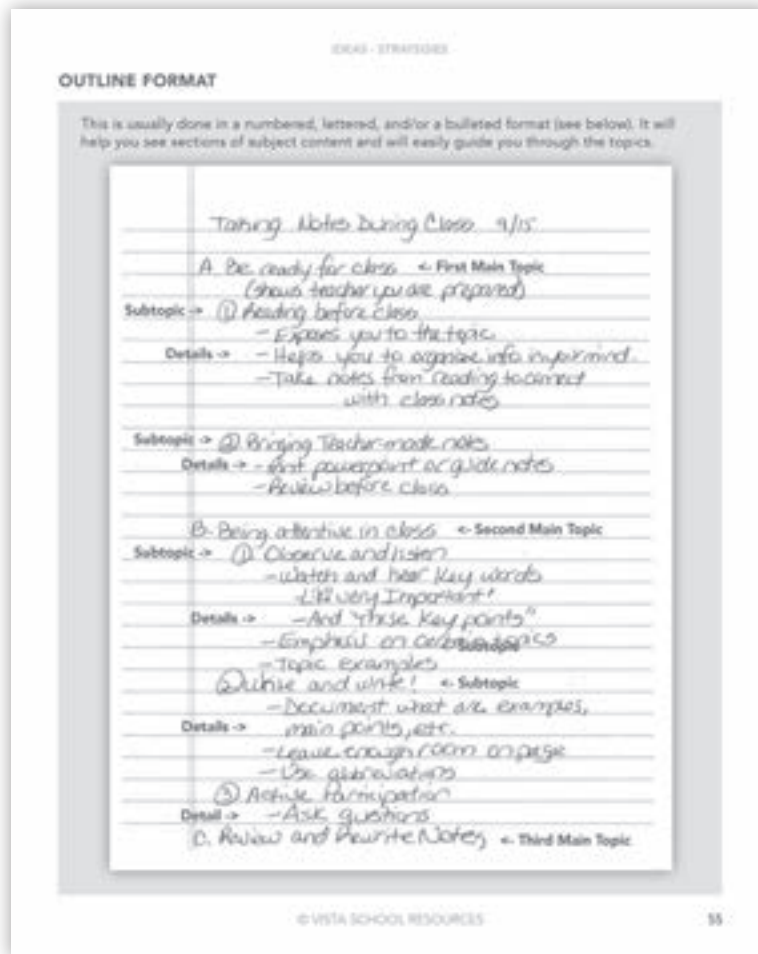 IDEAS - STRATEGIES
OUTLINE FORMAT
This is usually done in a numbered, lettered, and/or a bulleted format (see below). It will
help you see sections of subject content and will easily guide you through the topics.
Taking Notes During Class 9/15
A. Be ready for class <- First Main Topic
(shows teacher you are prepared)
Subtopic -> ① Reading before class
- Exposes you to the topic
Details -> - Helps you to organize info in your mind.
- Take notes from reading to connect
with class notes
Subtopic -> ② Bringing Teacher-made notes
Details -> - Print powerpoint or guide notes
- Review before class
B. Being attentive in class <- Second Main Topic
Subtopic -> ① Observe and listen
- Watch and hear key words
- Like very Important!
Details -> - And "these key points"
- Emphasis on certain topics
Subtopic
- Topic examples
② Write and write! <- Subtopic
- Document what are examples,
Details -> main points, etc.
- Leave enough room on page
- Use abbreviations
③ Active Participation
Detail -> - Ask questions
C. Review and Rewrite Notes <- Third Main Topic
© VISTA SCHOOL RESOURCES
55